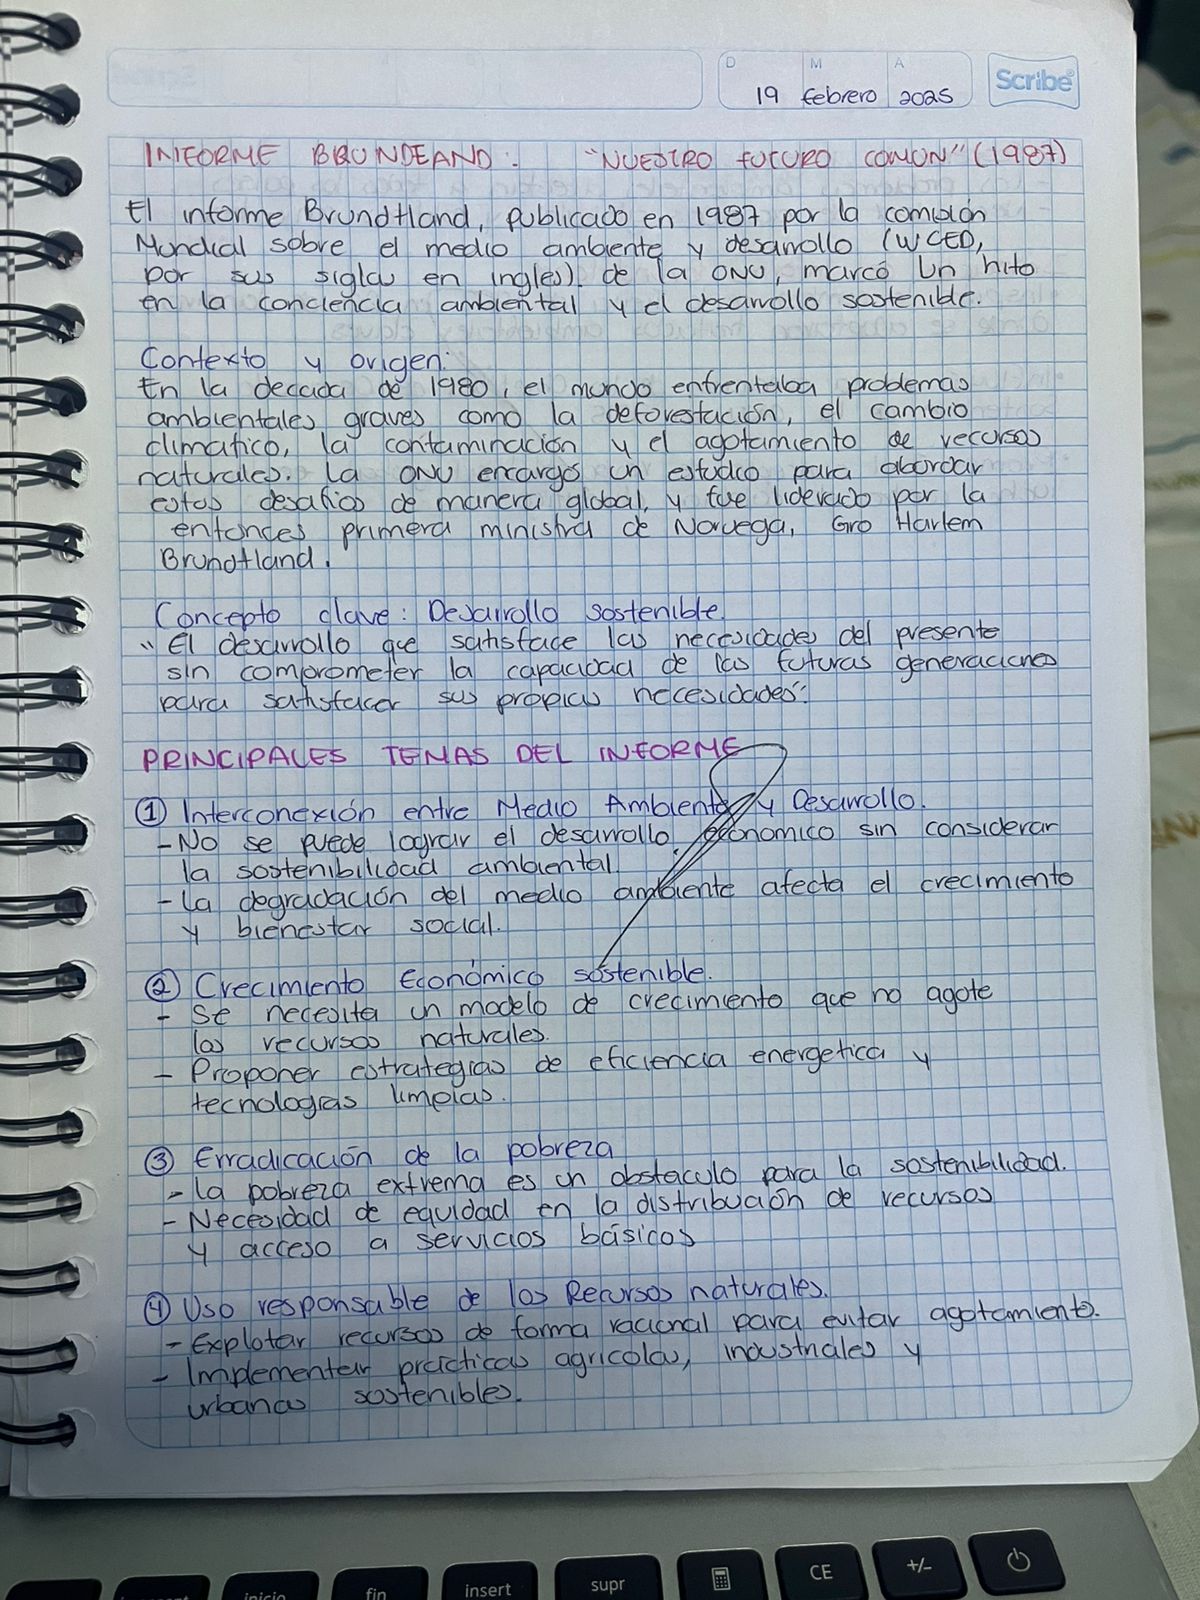 D M A
19 febrero 2025
Scribe
INFORME BRUNDEAND: "NUESTRO FUTURO COMÚN" (1987)
El informe Brundtland, publicado en 1987 por la comisión
Mundial sobre el medio ambiente y desarrollo (WCED,
por sus siglas en ingles). de la ONU, marcó un hito
en la conciencia ambiental y el desarrollo sostenible.
Contexto y origen:
En la decada de 1980, el mundo enfrentaba problemas
ambientales graves como la deforestación, el cambio
climatico, la contaminación y el agotamiento de recursos
naturales. La ONU encargos un estudio para abordar
estos desafios de manera global, y fue liderado por la
entonces primera ministra de Noruega, Gro Harlem
Brundtland.
Concepto clave: Desarrollo sostenible.
"El desarrollo que satisface las necesidades del presente
sin comprometer la capacidad de las futuras generaciones
para satisfacer sus propias necesidades".
PRINCIPALES TEMAS DEL INFORME
① Interconexión entre Medio Ambiente y Desarrollo.
- No se puede lograr el desarrollo económico sin considerar
la sostenibilidad ambiental.
- La degradación del medio ambiente afecta el crecimiento
y bienestar social.
② Crecimiento Económico sostenible.
- Se necesita un modelo de crecimiento que no agote
los recursos naturales.
- Proponer estrategias de eficiencia energetica y
tecnologias limpias.
③ Erradicación de la pobreza
- La pobreza extrema es un obstaculo para la sostenibilidad.
- Necesidad de equidad en la distribución de recursos
y acceso a servicios básicos
④ Uso responsable de los Recursos naturales.
- Explotar recursos de forma racional para evitar agotamiento.
- Implementar prácticas agricolas, industriales y
urbanas sostenibles.
inicio fin insert supr CE +/-